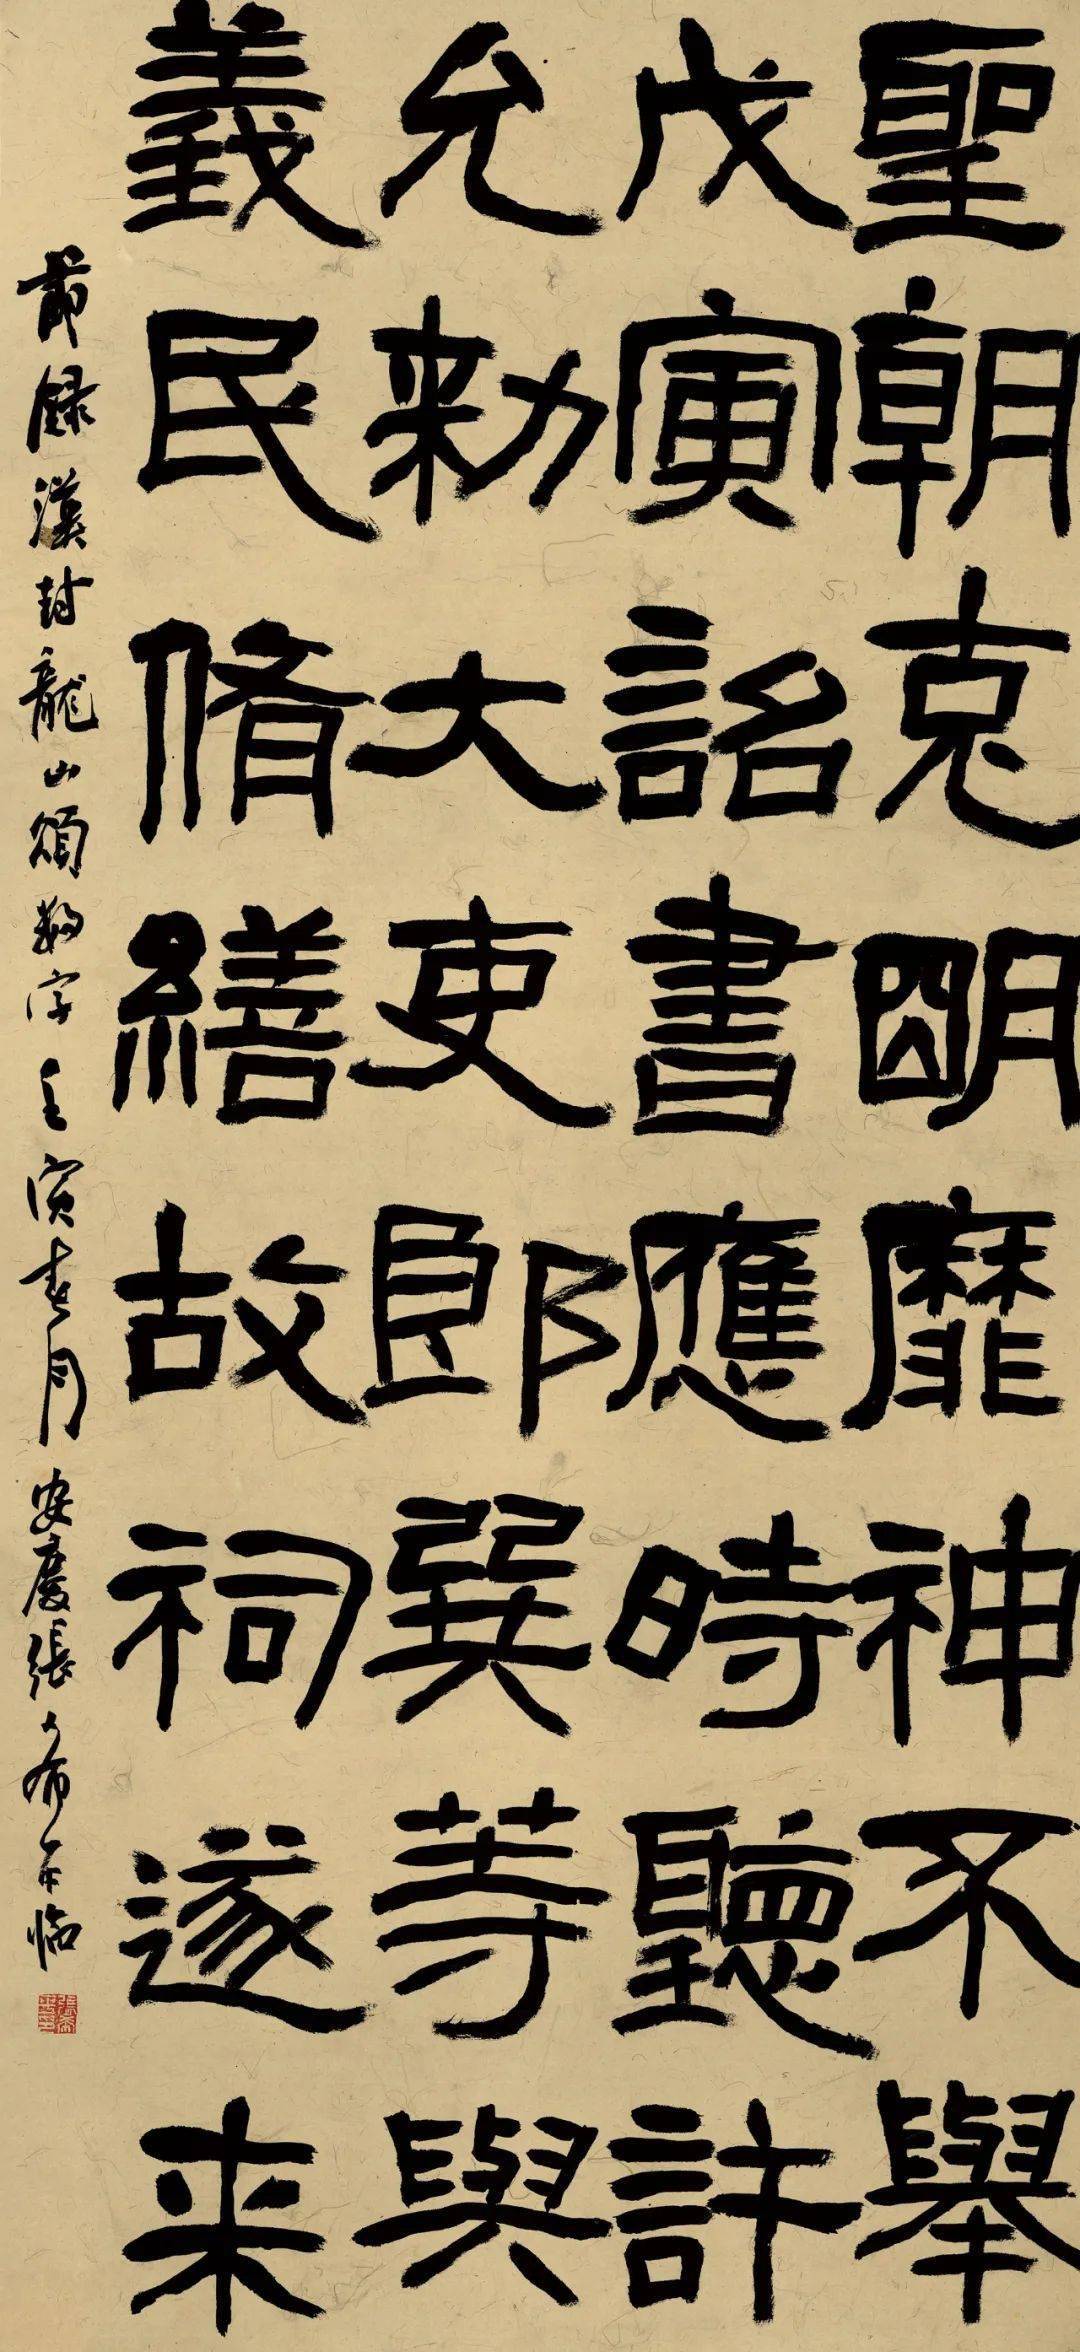 聖朝克明靡神不舉
戊寅詔書應時聽許
允勑大吏郎巽等與
義民脩繕故祠遂来
節錄漢封龍山頌數字壬寅春月安慶張臨